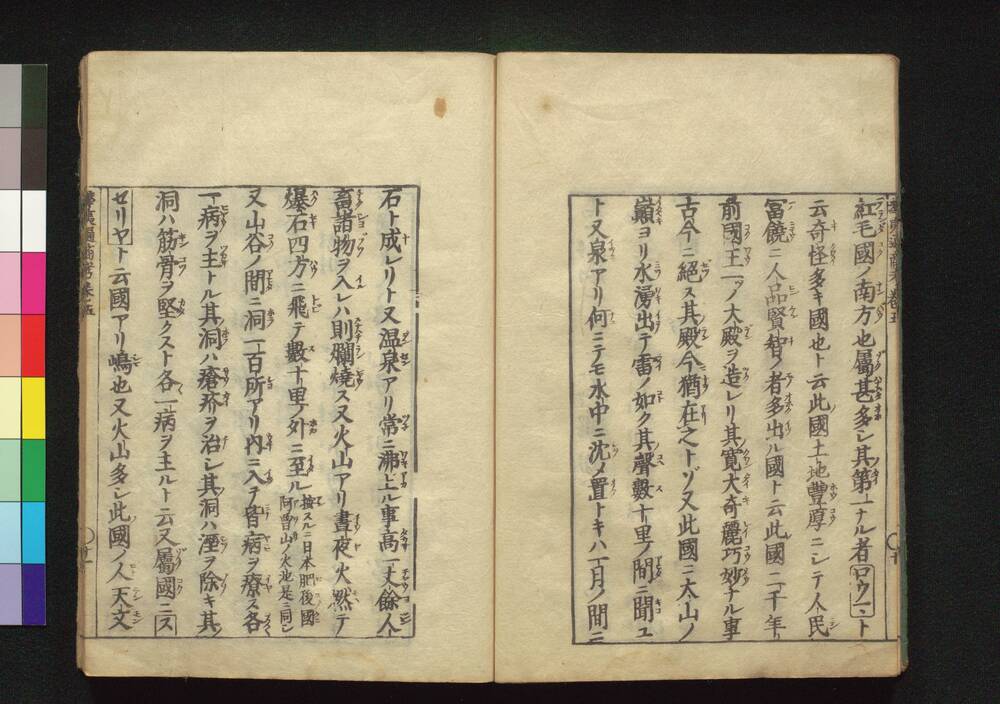 紅毛國ノ南方也屬甚多シ其第一ナル者ロウマト
云奇怪多キ國也ト云此國土地豐厚ニシテ人民
冨饒ニ人品賢智ノ者多出ル國ト云此國二千年
前國王一ツノ大殿ヲ造レリ其寛大奇麗巧妙ナル事
古今ニ絕ス其殿今猶在之トゾ又此國ニ太山ノ
巓ヨリ水湧出テ雷ノ如ク其聲數十里ノ間ニ聞ユ
ト又泉アリ何ニテモ水中ニ沈メ置トキハ一月ノ間ニ
石ト成レリト又温泉アリ常ニ沸上ル事高一丈餘人
畜諸物ヲ入レハ則爛燒ス又火山アリ晝夜火燃テ
爆石四方ニ飛テ數十里ノ外ニ至ル
按スルニ日本肥後國
阿曽山ノ火池是ニ同シ
又山谷ノ間ニ洞一百所アリ内ニ入テ皆病ヲ療ス各
一病ヲ主トル其洞ハ瘡疥ヲ治シ其洞ハ湮ヲ除キ其
洞ハ筋骨ヲ堅クスト各一病ヲ主ルト云又屬國ニス
ゼリヤト云國アリ嶋也又火山多シ此國ノ人天文